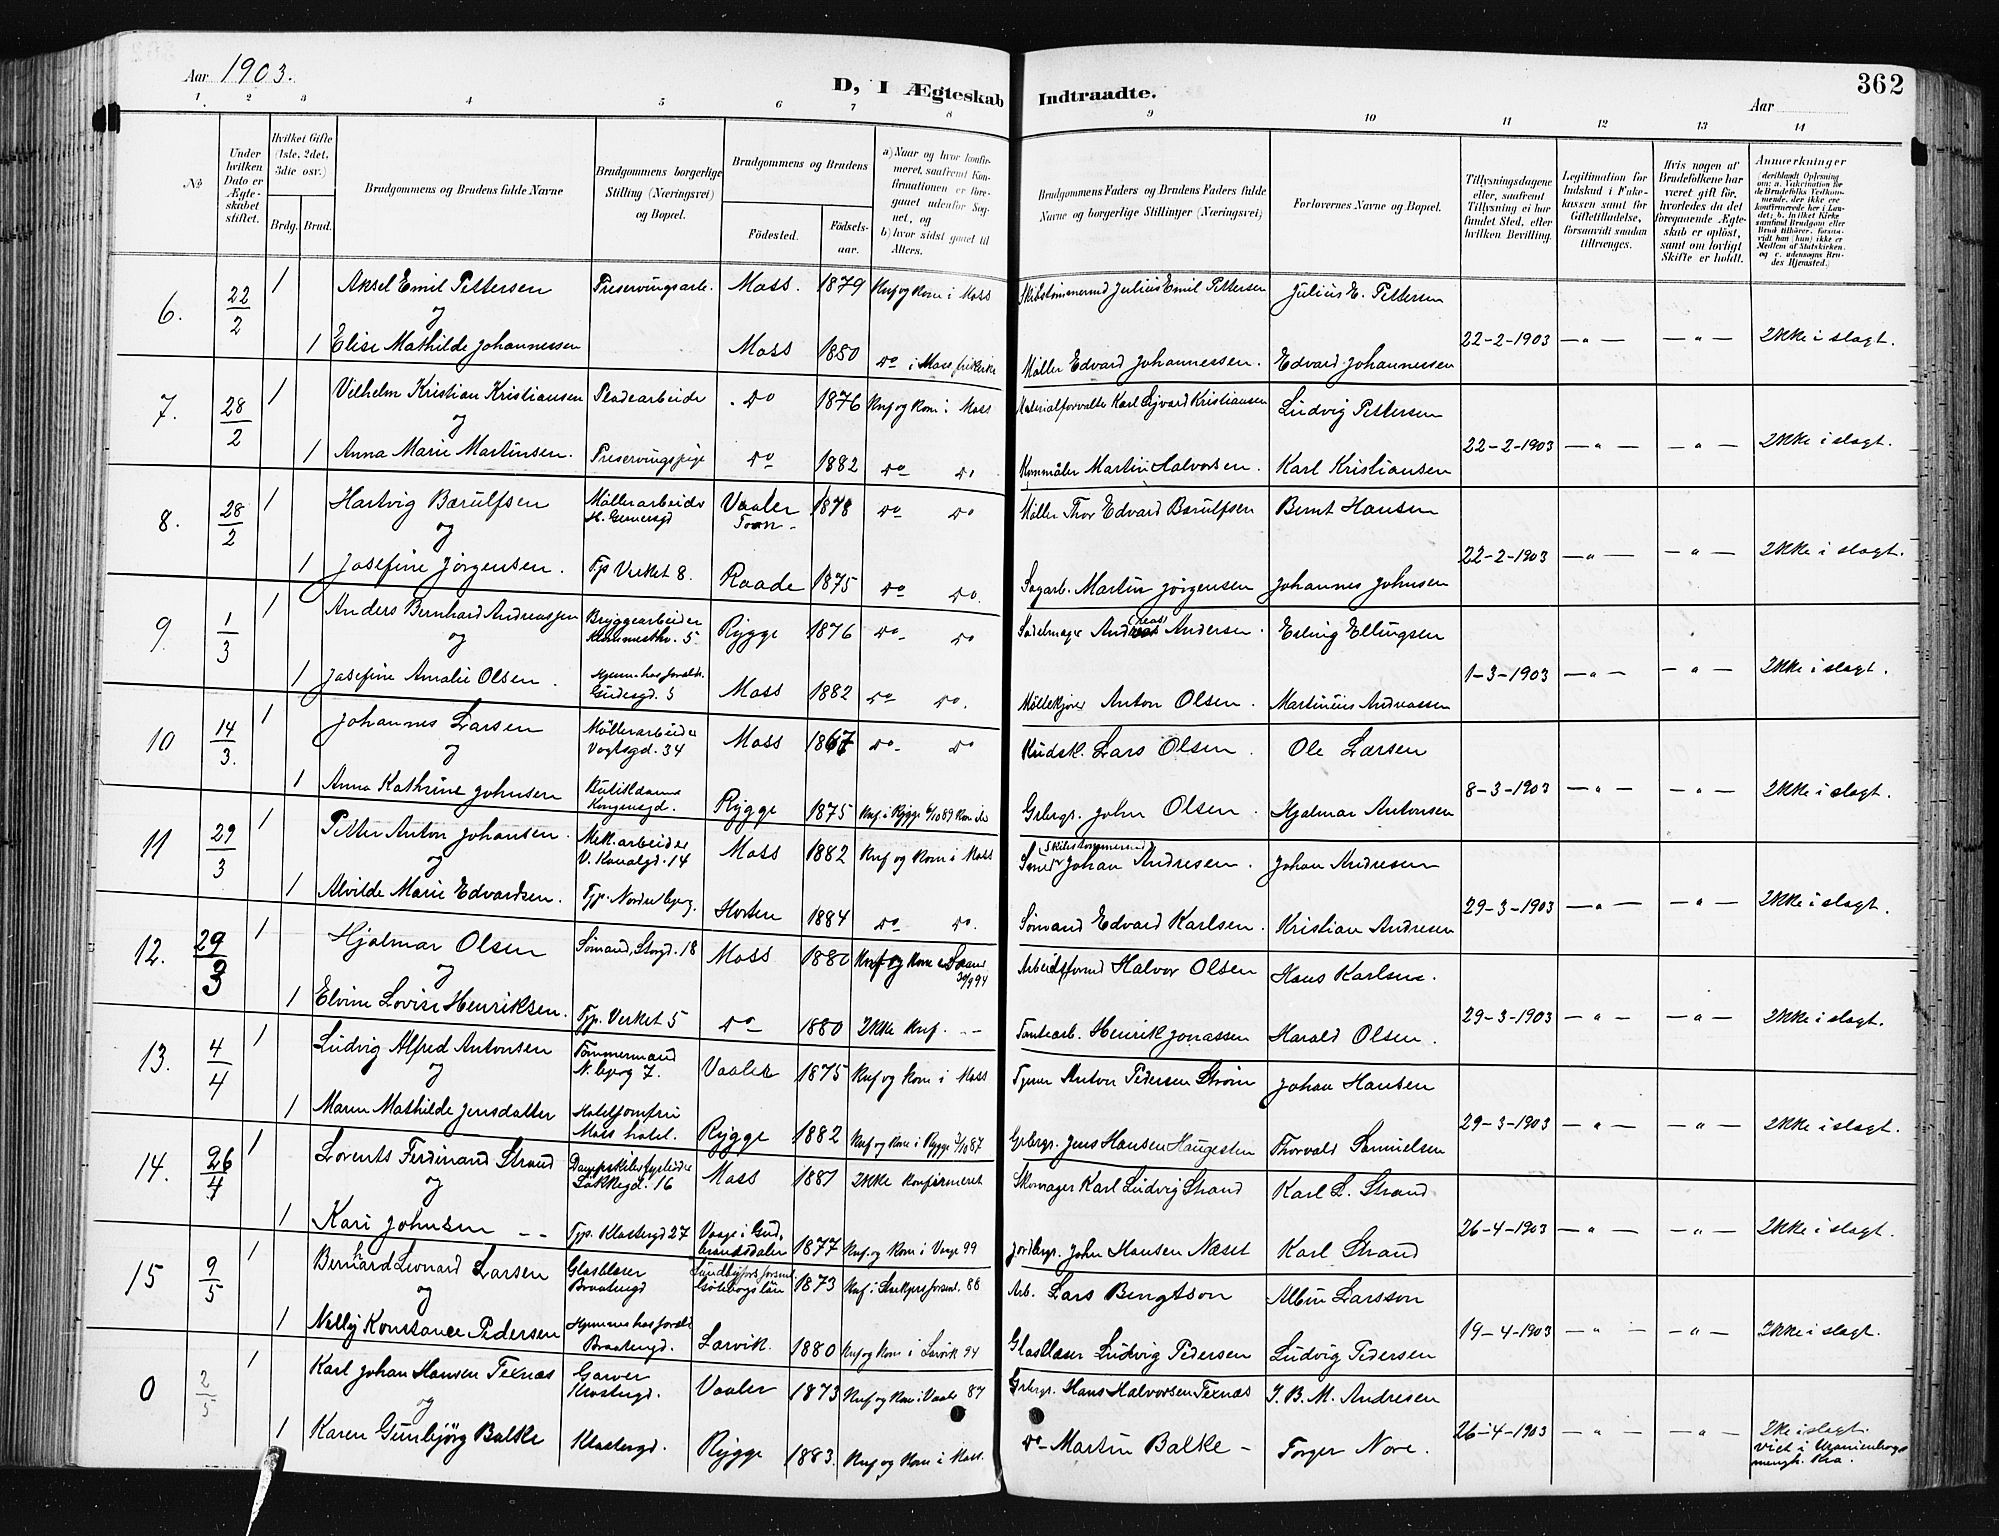 Aar 1903.
D, I Ægteskab Indtraadte.
362
Aar
1. 2 3 4 5 6 7 8 9 10 11 12 13 14
№
Under hvilken Dato er Ægteskabet stiftet.
Hvilket Gifte (1ste, 2det, 3die osv.)
Brdg. Brud.
Brudgommens og Brudens fulde Navne
Brudgommens borgerlige Stilling (Næringsvei) og Bopæl.
Brudgommens og Brudens
Fødested.
Fødselsaar.
a) Naar og hvor konfirmeret, saafremt Konfirmationen er foregaaet udenfor Sognet, og
b) hvor sidst gaaet til Alters.
Brudgommens Faders og Brudens Faders fulde Navne og borgerlige Stillinger (Næringsvei)
Forlovernes Navne og Bopæl.
Tillysningsdagene eller, saafremt Tillysning ei har fundet Sted, efter hvilken Bevilling.
Legitimation for Indskud i Enkekassen samt for Giftetilladelse, forsaavidt saadan tiltrænges.
Hvis nogen af Brudefolkene har været gift før, hvorledes da det foregaaende Ægteskab er opløst, samt om lovligt Skifte er holdt.
Anmærkninger
6. 22/2 1 Aksel Emil Pettersen Preservingsarb. Moss. 1879 Knf og Kom i Moss Skibstømmermd Julius Emil Pettersen Julius E. Pettersen
og
1 Elise Mathilde Johannessen Moss 1880 Do i Moss frikirke Møller Edvard Johannessen. Edvard Johannessen 22-2-1903 —„— —„— Ikke i slægt.
7. 28/2 1 Vilhelm Kristian Kristiansen Pladearbeider Do 1876 Knf og Kom i Moss Materialforvalter Karl Sivard Kristiansen Ludvig Pettersen
og
1 Anna Marie Martinsen. Preservingspige Do 1882 Do Do Martin Halvorsen. Karl Kristiansen 22-2-1903 —„— —„— Ikke i slægt.
8. 28/2 1 Hartvig Bærulfsen Møllerarbeider H. Gernersgd Vaaler 1878 Do Do Møller Thor Edvard Bærulfsen Bernt Hansen
og
1 Josefine Jørgensen. Tjp Verket 8. Raade 1875 Do Do. Sagarb. Martin Jørgensen Johannes Johnsen 22-2-1903 —„— —„— Ikke i slægt.
9. 1/3 1 Anders Bernhard Andreassen Bryggearbeider 5 Rygge 1876 Do Do Sadelmager Andreas Andersen. Erling Ellingsen
og
1 Josefine Amalie Olsen. Hjemme hos forældr. Gudesgd. 5 Moss 1882 Do Do. Møllekjører Anton Olsen. Martinius Andreassen 1-3-1903 —„— —„— Ikke i slægt.
10 14/3. 1 Johannes Larsen Møllerarbeider Vogtsgd. 34 Moss 1867 Do Do Kudsk. Lars Olsen. Ole Larsen
og
1 Anna Kathrine Johnsen Butikdame Kongensgd. Rygge 1875 Knf. i Rygge 6/10 89 Kom do Grbrgs. John Olsen. Hjalmar Antonsen 8-3-1903 —„— —„— Ikke i slægt.
11 29/3 1 Petter Anton Johansen. Mek. arbeider V. Kanalgd. 14 Moss 1882 Knf og kom i Moss Skibstømmermd Johan Andresen. Johan Andresen
og
1 Alvilde Marie Edvardsen. Tjp. Nordre bgrg. Horten 1884 Do Do. Sømand Edvard Karlsen. Kristian Andresen 29-3-1903 —„— —„— Ikke i slægt.
12. 29/3 1 Hjalmar Olsen Sømand, Storgd. 18 Moss 1880 Knf og Kom 30/9 94 Arbeidsformd Halvor Olsen Hans Karlsen.
og
1 Elvine Lovise Henriksen. Tjp. Verket 5 Do 1880 Ikke knf. Tomtearb. Henrik Jonassen Harald Olsen. 29-3-1903 —„— —„— Ikke i slægt.
13. 4/4 1 Ludvig Alfred Antonsen Tømmermand N. bgrg 7. Vaaler 1875 Knf og Kom i Moss Anton Pedersen Strøm Johan Hansen
og
1 Maren Mathilde Jensdatter Hoteljomfru Moss hotel. Rygge 1882 Knf og Kom i Rygge /10 87 Grbrgs. Jens Hansen Haugesten Thorvald Samuelsen 29-3-1903 —„— —„— Ikke i slægt.
14. 26/4 1 Lorents Ferdinand Strand Dampskibsfyrbøder Løkkegd. 16 Moss 1881 Ikke konfirmeret Skomager Karl Ludvig Strand Karl L. Strand
og
1 Kari Johnsen Tjp. Klostergd 27 Vaage i Gudbrandsdalen 1877 Knf. og Kom i Vaage 99 Jordbrgr. John Hansen Næset Karl Strand 26-4-1903 —„— —„— Ikke i slægt.
15 9/5 1 Bernhard Leonard Larsen Glasblæser Braatengd Lundbyfors forsml. Gøteborgs län 1873 88 Arb. Lars Bengtson Albin Larsson
og
1 Nelly Konstance Pedersen Hjemme hos foræld. Braatengd. Larvik. 1880 Knf og Kom i Larvik 94 Glasblæser Ludvig Pedersen Ludvig Pedersen 19-4-1903 —„— —„— Ikke i slægt.
0 2/5 1 Karl Johan Hansen Texnæs Garver Klostergd. Vaaler 1873 Knf og Kom i Vaaler 87 Grbrgr. Hans Halvorsen Texnæs J. B. M. Andresen
og
1 Karen Gunbjørg Balke Klostergd. Rygge 1883. Knf og Kom i Moss. Do Martin Balke Torger Nore. 26-4-1903 —„— —„— Ikke i slægt. viet i Uranienborgs mengh. Kra.